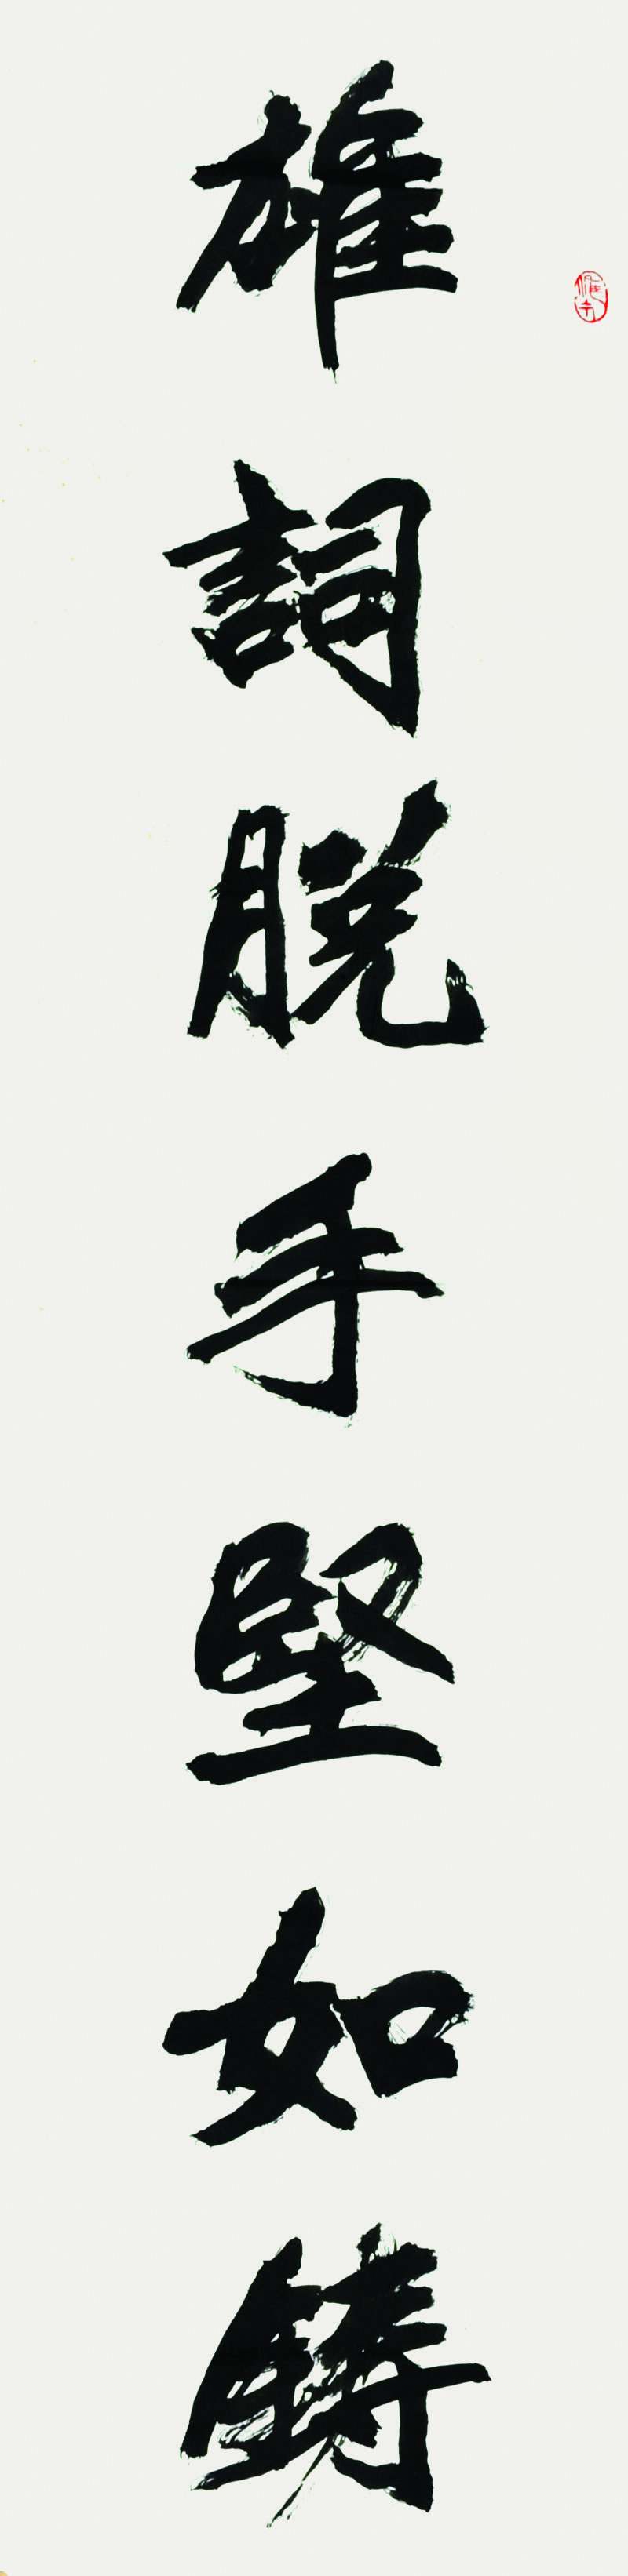 雄詞脫手堅如鑄